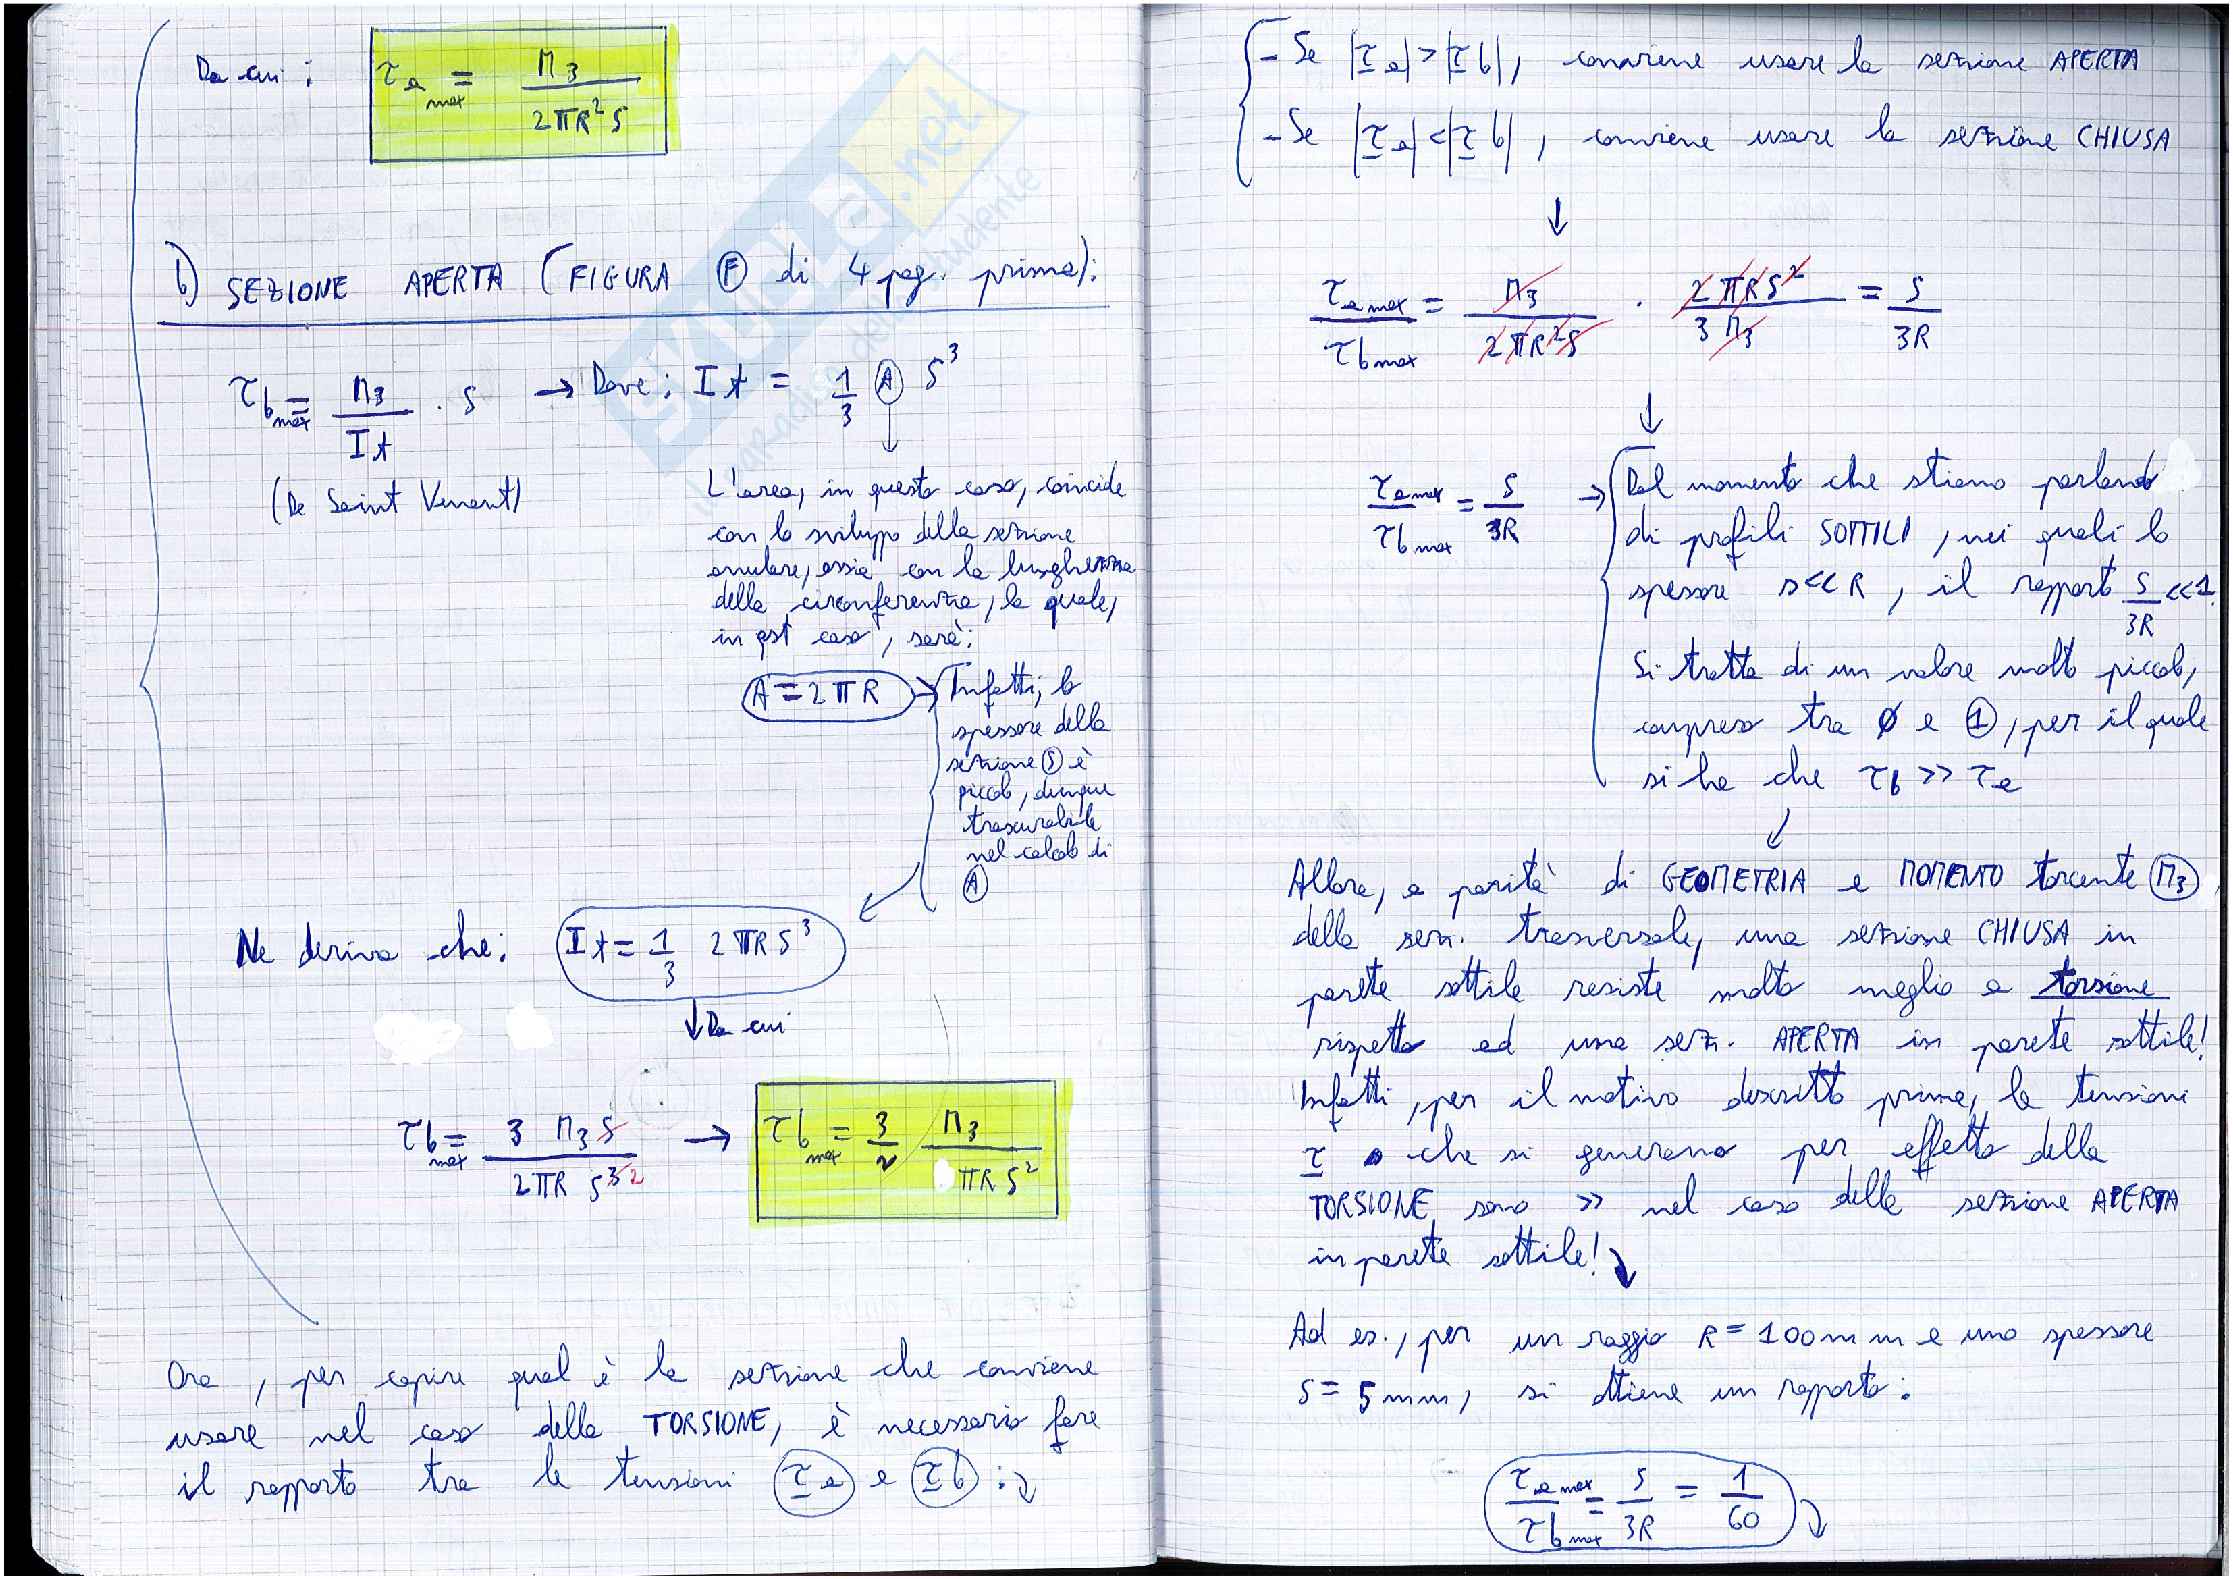 Da cui:
τa max = M3 / 2πR²S
b) SEZIONE APERTA (FIGURA Ⓕ di 4 pag. prima):
τb max = M3 / It · S → Dove: It = 1/3 Ⓐ S³
(De Saint Venant)
L'area, in questo caso, coincide
con lo sviluppo della sezione
anulare, ossia con la lunghezza
della circonferenza, la quale,
in qst caso, sarà:
A = 2πR → Infatti, lo
spessore della
sezione Ⓢ è
piccolo, dunque
trascurabile
nel calcolo di
Ⓐ
Ne deriva che: It = 1/3 2πR S³
↓ Da cui
τb max = 3 M3 S / 2πR S³ ² → τb max = 3/2 M3 / πR S²
Ora, per capire qual è la sezione che conviene
usare nel caso della TORSIONE, è necessario fare
il rapporto tra le tensioni τa e τb :
- Se |τa| > |τb|, conviene usare la sezione APERTA
- Se |τa| < |τb|, conviene usare la sezione CHIUSA
↓
τa max / τb max = M3 / 2πR²S · 2πRS² / 3 M3 = S / 3R
↓
τa max / τb max = S / 3R → Dal momento che stiamo parlando
di profili SOTTILI, nei quali lo
spessore s << R, il rapporto S/3R << 1.
Si tratta di un valore molto piccolo,
compreso tra 0 e ①, per il quale
si ha che τb >> τa
Allora, a parità di GEOMETRIA e MOMENTO torcente M3,
della sez. trasversale, una sezione CHIUSA in
parete sottile resiste molto meglio a torsione
rispetto ad una sez. APERTA in parete sottile!
Infatti, per il motivo descritto prima, le tensioni
τ che si generano per effetto della
TORSIONE sono >> nel caso della sezione APERTA
in parete sottile!
Ad es., per un raggio R = 100 mm e uno spessore
S = 5 mm, si ottiene un rapporto:
τa max / τb max = S / 3R = 1 / 60
SKUOLA.net